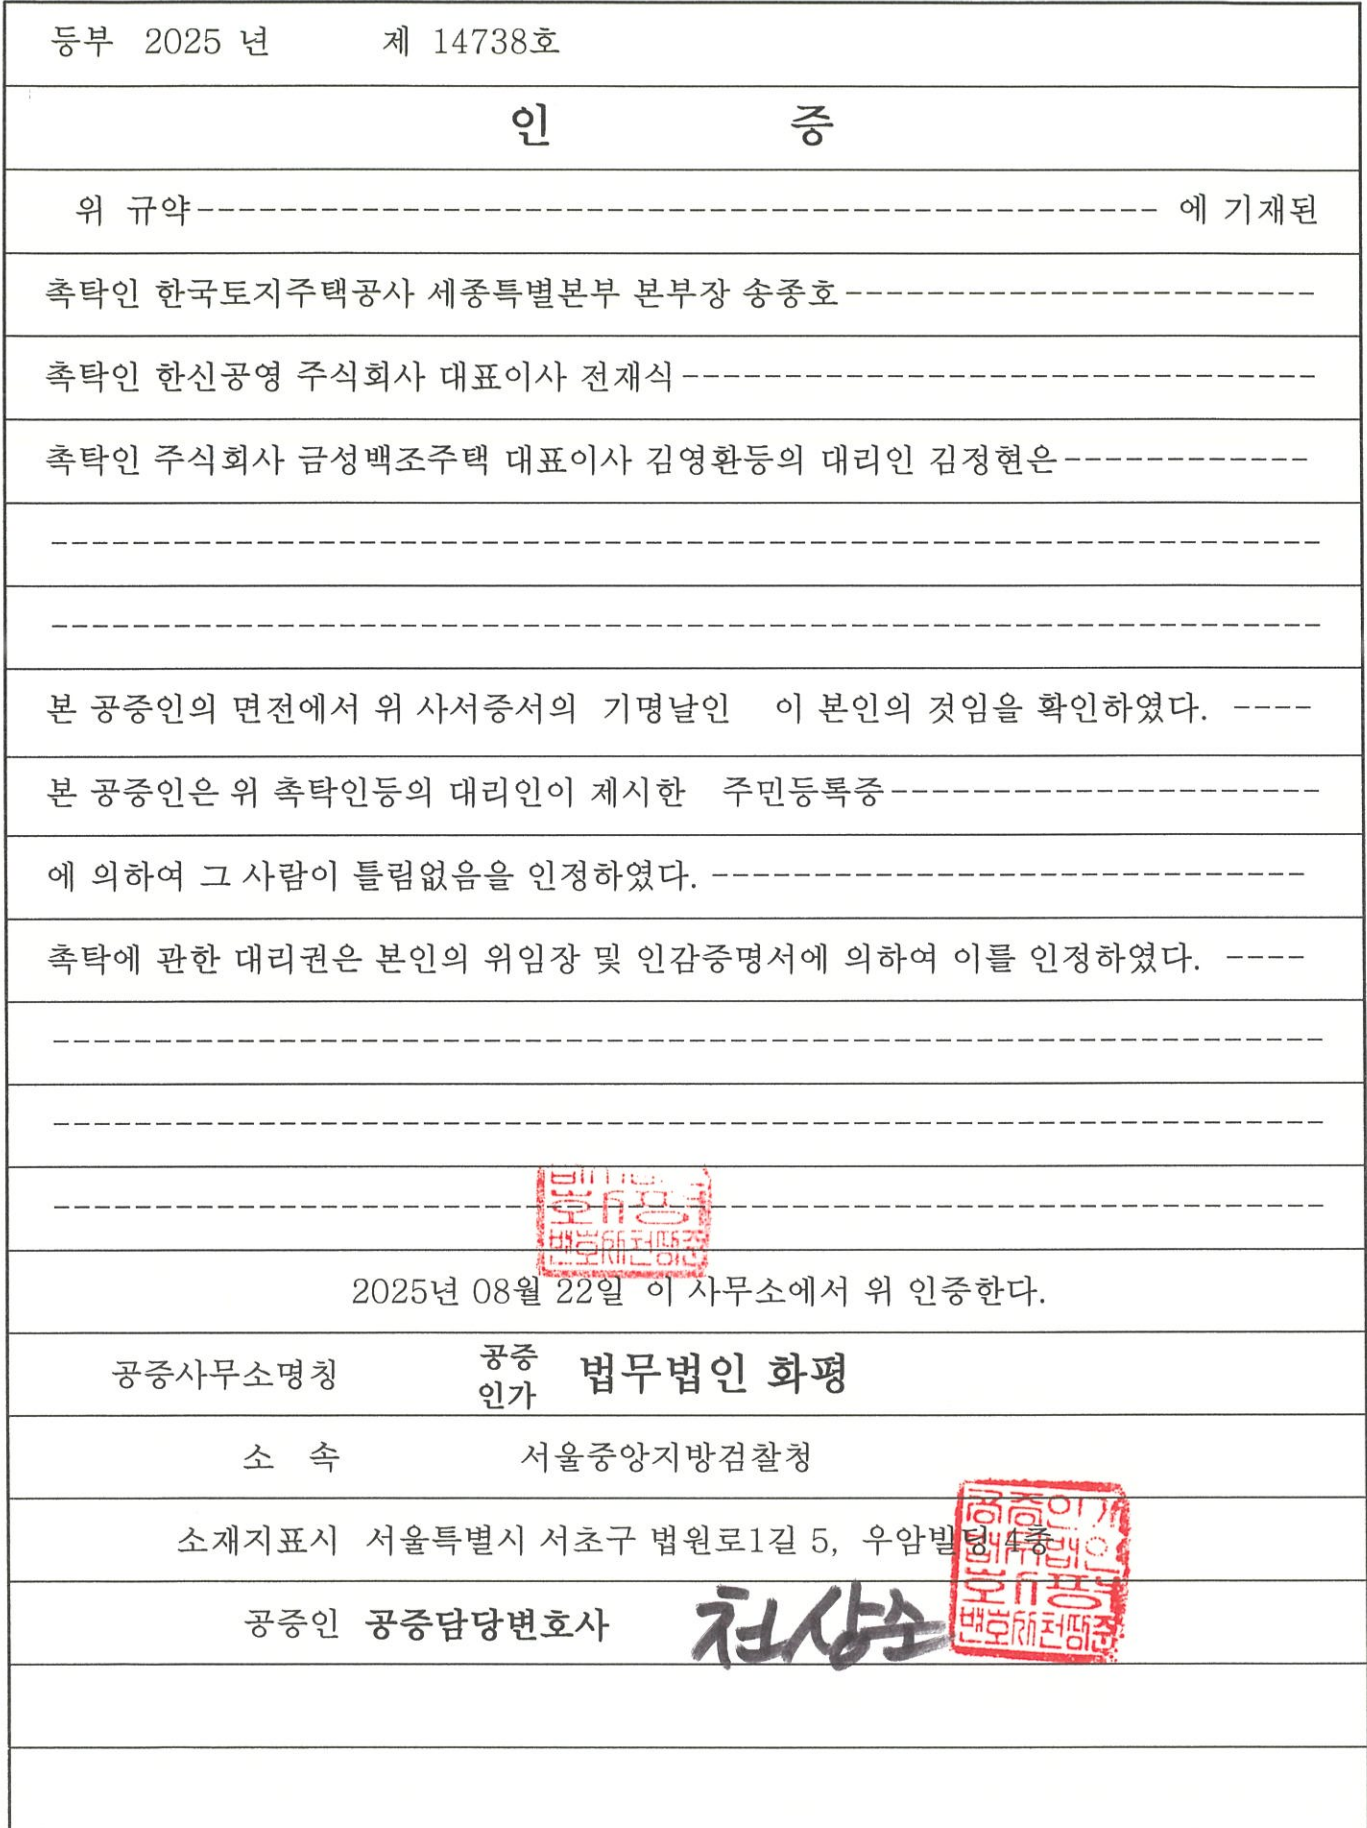 등부 2025 년 제 14738호
인 증
위 규약---------------------------------------------- 에 기재된
촉탁인 한국토지주택공사 세종특별본부 본부장 송종호-----------------------
촉탁인 한신공영 주식회사 대표이사 전재식-------------------------------
촉탁인 주식회사 금성백조주택 대표이사 김영환등의 대리인 김정현은------------
본 공증인의 면전에서 위 사서증서의 기명날인 이 본인의 것임을 확인하였다. ----
본 공증인은 위 촉탁인등의 대리인이 제시한 주민등록증---------------------
에 의하여 그 사람이 틀림없음을 인정하였다. -----------------------------
촉탁에 관한 대리권은 본인의 위임장 및 인감증명서에 의하여 이를 인정하였다. ----
2025년 08월 22일 이 사무소에서 위 인증한다.
공증인가 법무법인 화평
공증사무소명칭
소 속 서울중앙지방검찰청
소재지표시 서울특별시 서초구 법원로1길 5, 우암빌딩 4층
공증인 공증담당변호사